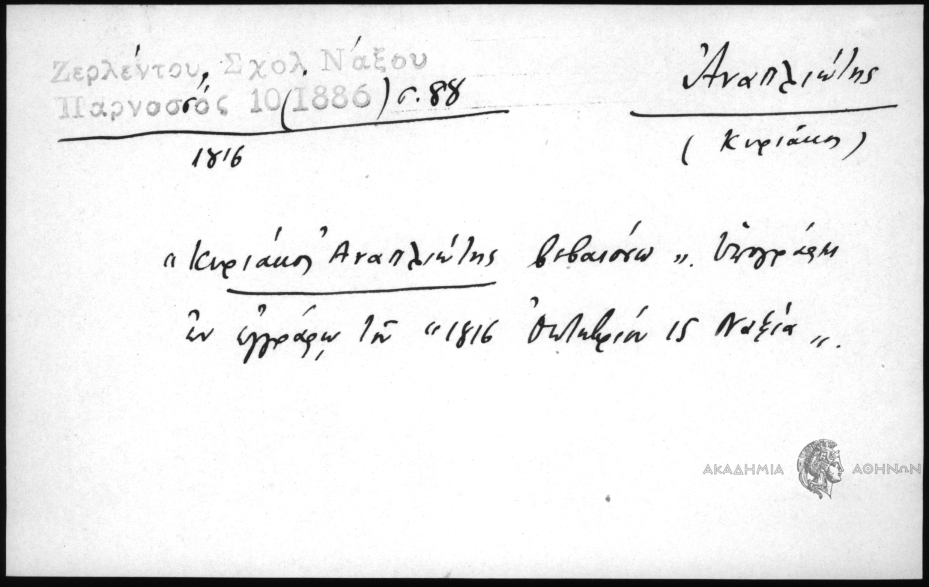 Ζερλέντου, Σχολ. Νάξου
Παρνασσός 10 (1886) σ. 88
Ἀναπλιώτης
1816
(Κυριάκος)
"Κυριάκος Ἀναπλιώτης βεβαιόνω". Ὑπογράφει
ἐν ἐγγράφῳ τοῦ "1816 Ὀκτωβρίου 15 Ναξία".
ΑΚΑΔΗΜΙΑ ΑΘΗΝΩΝ